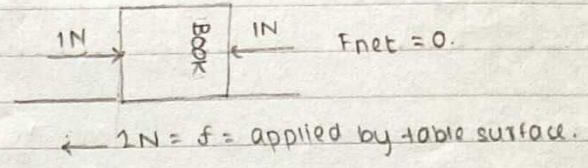 1N BOOK 1N Fnet = 0.
1N = f = applied by table surface.